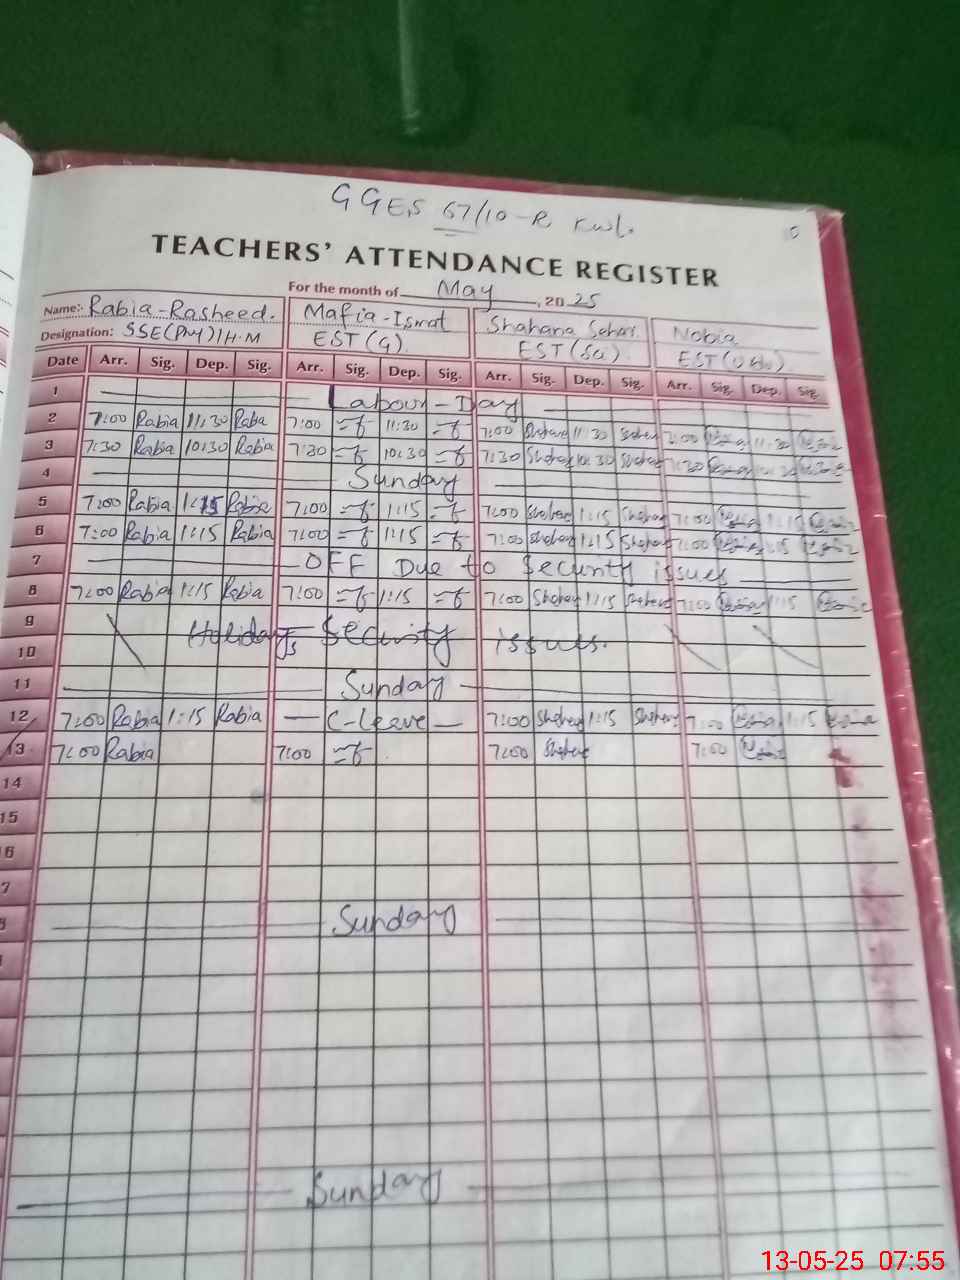 GGES 67/10-R Kwl.
TEACHERS' ATTENDANCE REGISTER
For the month of May, 2025
Name:- Rabia-Rasheed. Mafia-Ismat Shahana Sehar. Nobia
Designation: SSE(Phy)/H.M EST(G). EST(Sci).
Date Arr. Sig. Dep. Sig. Arr. Sig. Dep. Sig. Arr. Sig. Dep. Sig. Arr. Sig. Dep. Sig.
1 Labour-Day
2 7:00 Rabia 11:30 Rabia 7:00 11:30 7:00 11:30 7:00 11:30
3 7:30 Rabia 10:30 Rabia 7:30 10:30 7:30 10:30 7:30 10:30
4 Sunday
5 7:00 Rabia 1:15 Rabia 7:00 1:15 7:00 1:15 7:00 1:15
6 7:00 Rabia 1:15 Rabia 7:00 1:15 7:00 1:15 7:00 1:15
7 OFF Due to Security issues
8 7:00 Rabia 1:15 Rabia 7:00 1:15 7:00 1:15 7:00 1:15
9
Holidays Security issues.
10
11 Sunday
12 7:00 Rabia 1:15 Rabia C-leave 7:00 1:15 7:00 1:15
13 7:00 Rabia 7:00 7:00 7:00
14
15
6
7
8 Sunday
Sunday
13-05-25 07:55